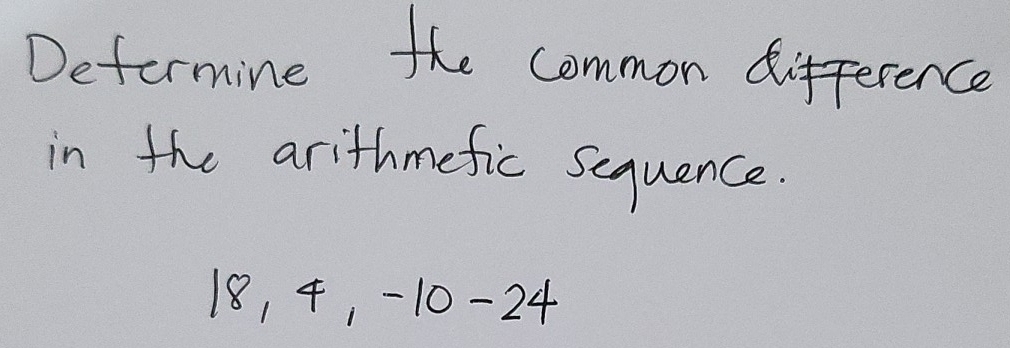 Determine the common difference
in the arithmetic sequence.
18, 4, -10 -24